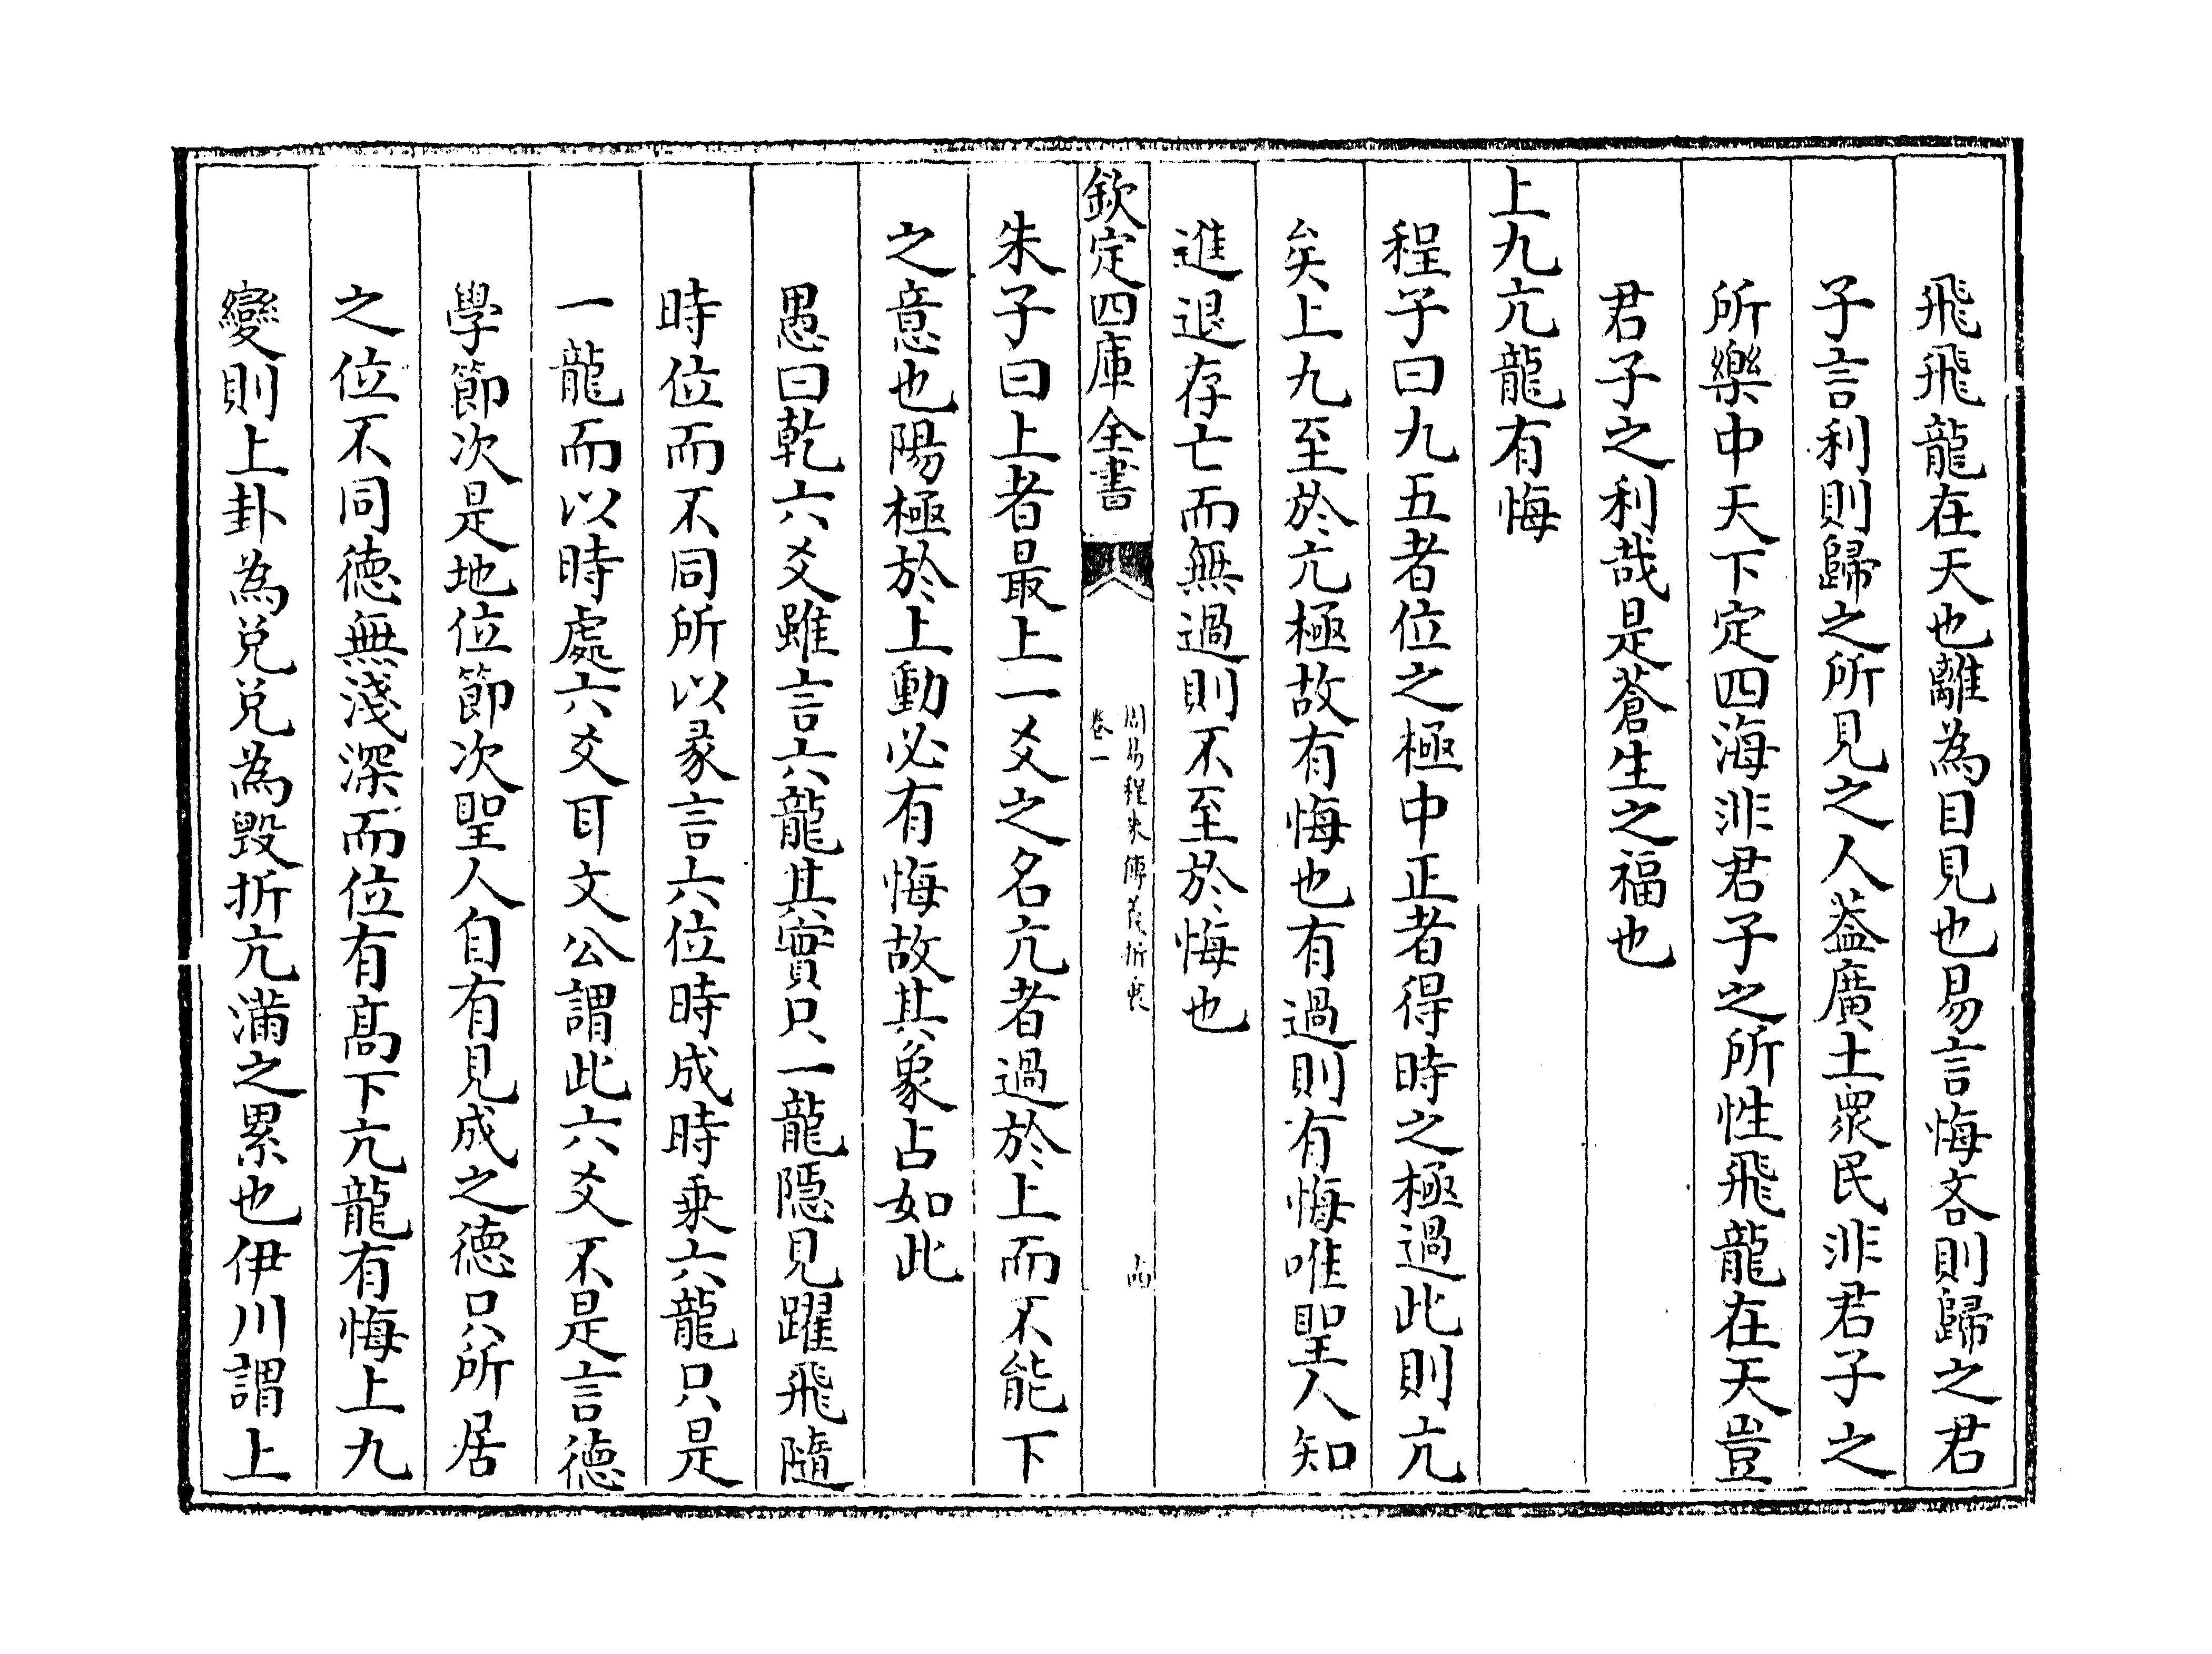 飛飛龍在天也離為目見也易言悔吝則歸之君
子言利則歸之所見之人葢廣土衆民非君子之
所樂中天下定四海非君子之所性飛龍在天豈
君子之利哉是蒼生之福也
上九亢龍有悔
程子曰九五者位之極中正者得時之極過此則亢
矣上九至於亢極故有悔也有過則有悔唯聖人知
進退存亡而無過則不至於悔也
欽定四庫全書
周易程朱傳義折衷
卷一
十四
朱子曰上者最上一爻之名亢者過於上而不能下
之意也陽極於上動必有悔故其象占如此
愚曰乾六爻雖言六龍其實只一龍隱見躍飛隨
時位而不同所以彖言六位時成時乗六龍只是
一龍而以時處六爻耳文公謂此六爻不是言德
學節次是地位節次聖人自有見成之德只所居
之位不同德無淺深而位有髙下亢龍有悔上九
變則上卦為兌兌為毀折亢滿之累也伊川謂上